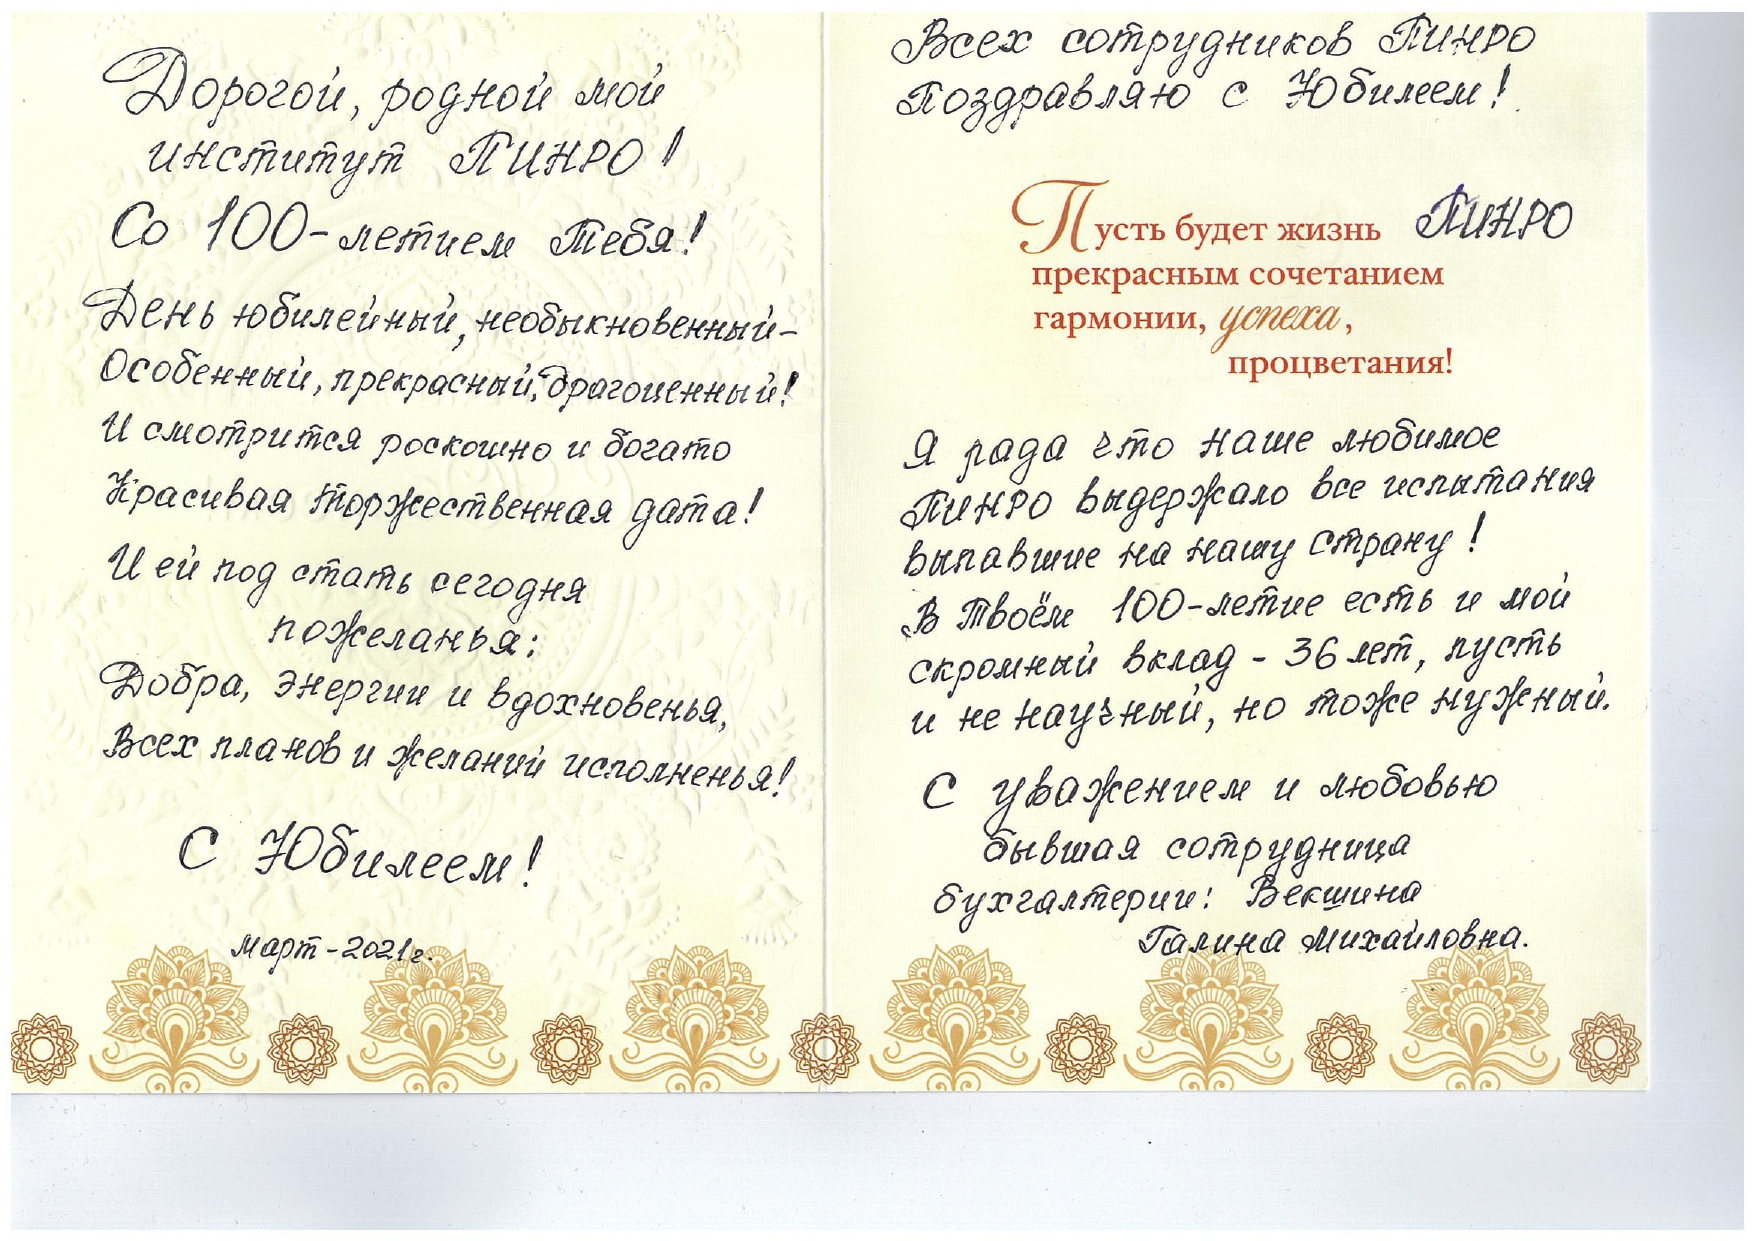 Дорогой, родной мой
институт ПИНРО!
Со 100-летием Тебя!
День юбилейный, необыкновенный-
Особенный, прекрасный, драгоценный!
И смотрится роскошно и богато
Красивая торжественная дата!
И ей под стать сегодня
пожеланья:
Добра, энергии и вдохновенья,
Всех планов и желаний исполненья!
С Юбилеем!
Март-2021г.
Всех сотрудников ПИНРО
Поздравляю с Юбилеем!
Пусть будет жизнь ПИНРО
прекрасным сочетанием
гармонии, успеха,
процветания!
Я рада что наше любимое
ПИНРО выдержало все испытания
выпавшие на нашу страну!
В Твоём 100-летие есть и мой
скромный вклад - 36 лет, пусть
и не научный, но тоже нужный.
С уважением и любовью
бывшая сотрудница
бухгалтерии: Векшина
Галина Михайловна.